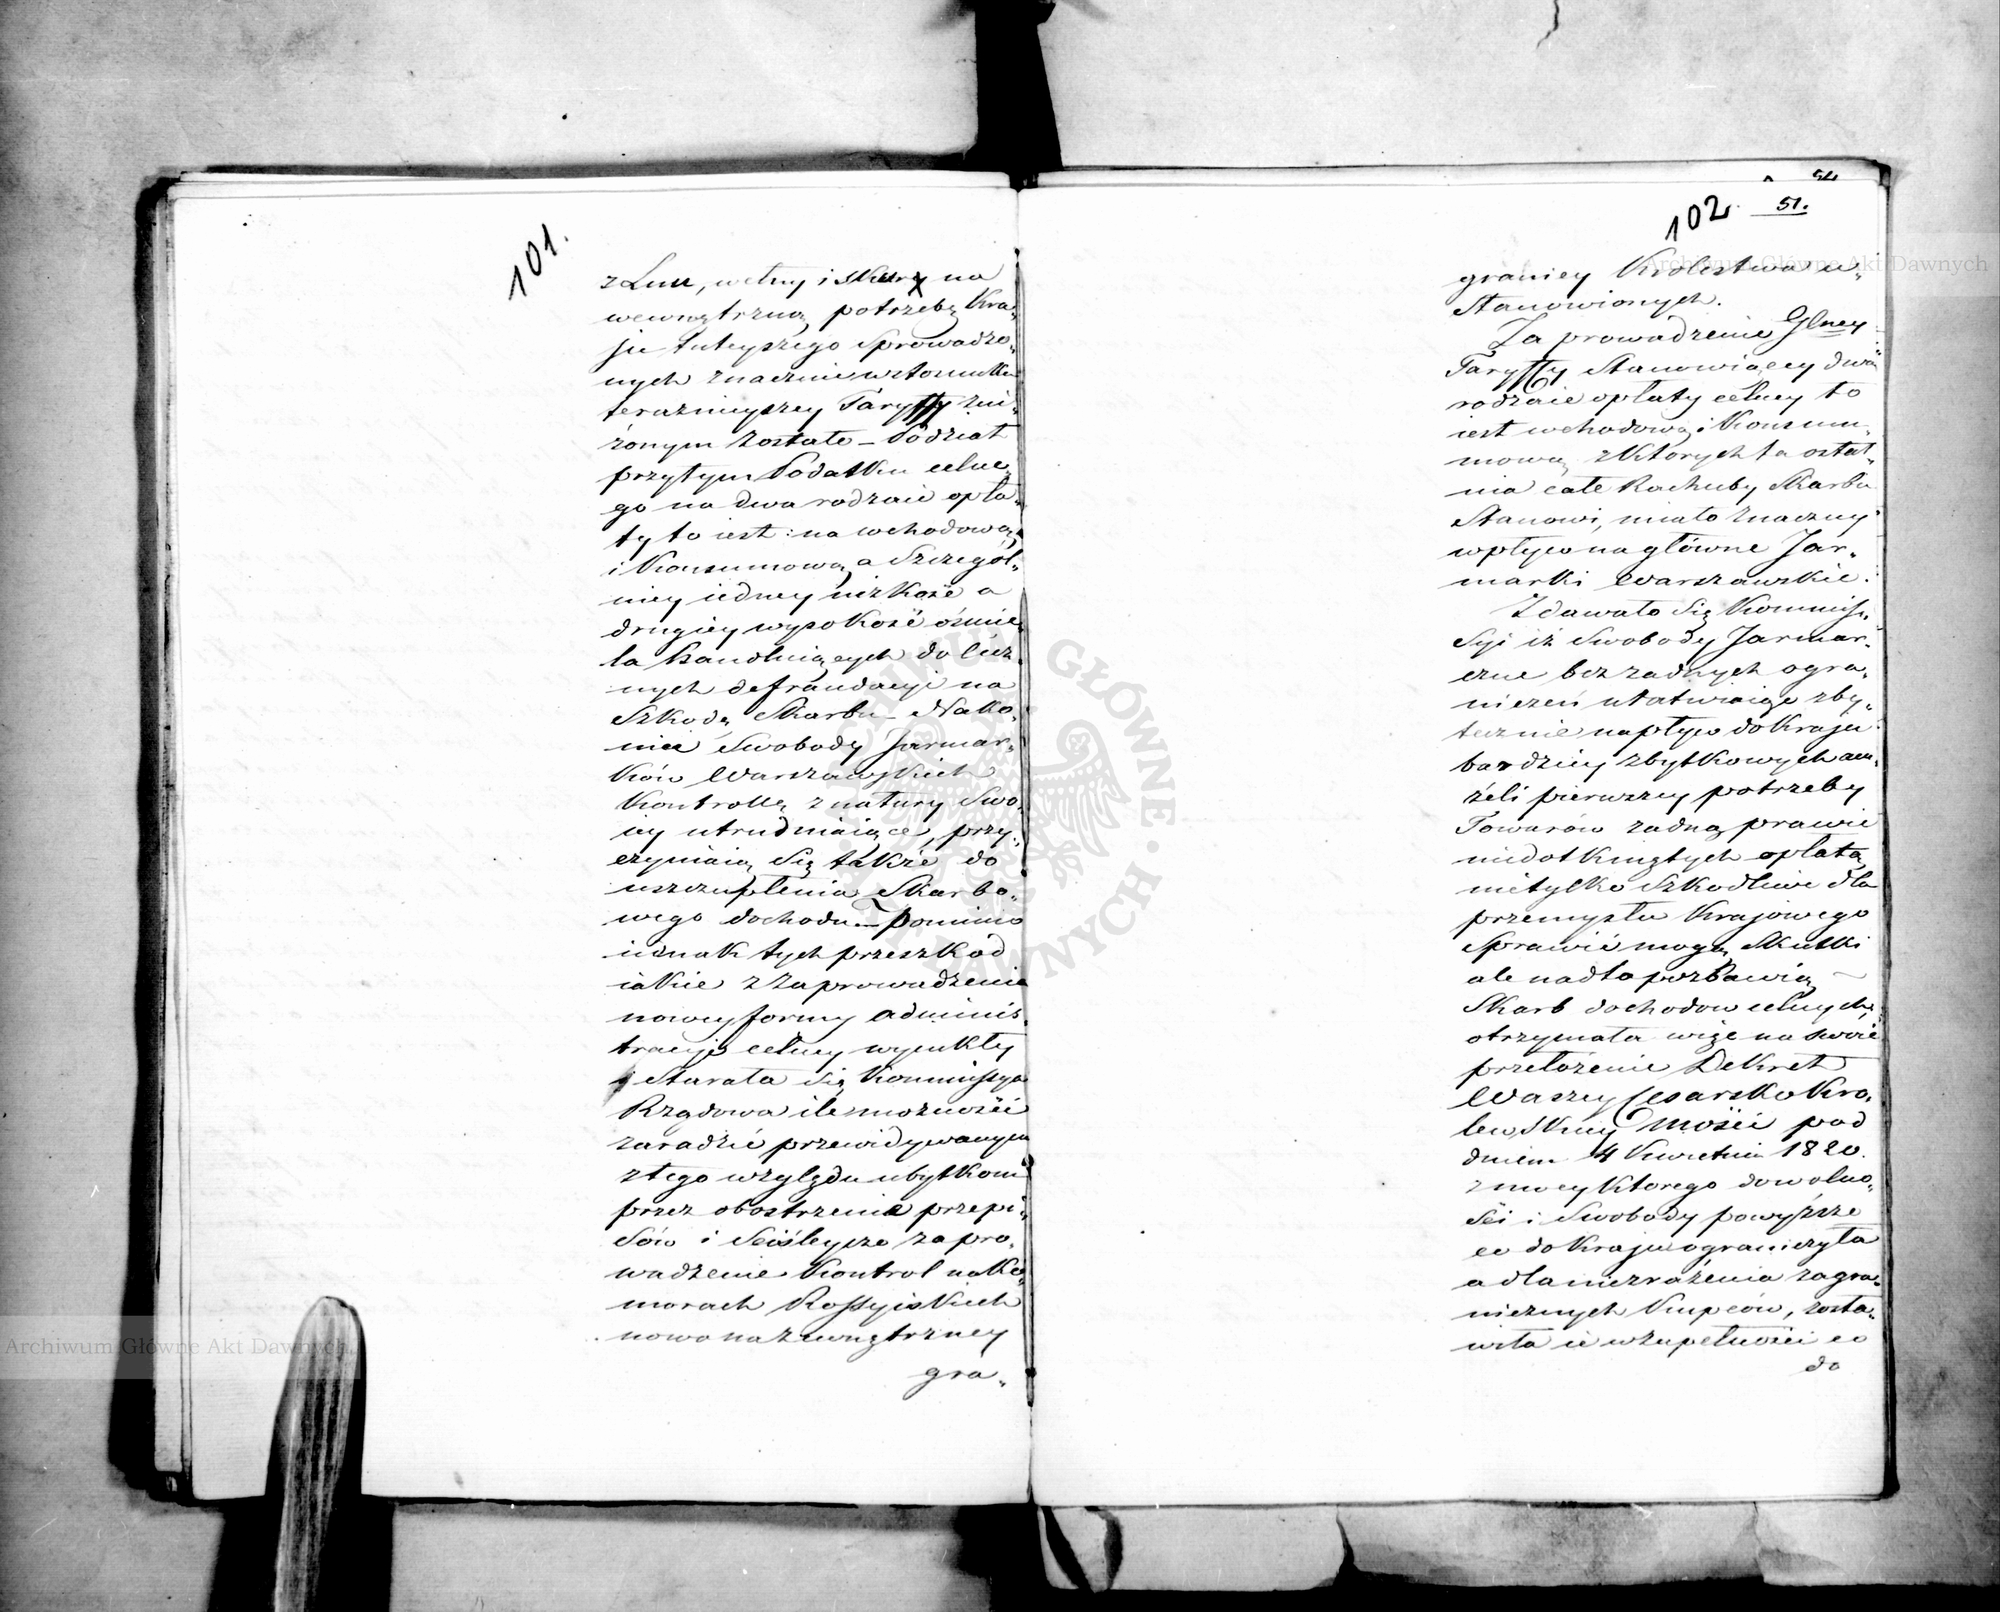 101.
z Lnu, wełny i skury na
wewnętrzną potrzebę Kra„
ju tuteyszego Sprowadzo„
nych znacznie w stosunku
teraznieyszey Taryffy zni„
żonym zostało — Podział
przytym Podatku celne„
go na dwa rodzaie opła„
ty to iest: na wchodową
i Konsumową a Szczegól„
niey iedney nizkość a
drugiey wysokość ośmie„
la handluiących do licz„
nych defraudacyi na
Szkodę Skarbu — Nako„
niec Swobody Jarmar„
ków Warszawskich
Kontrollę z natury Swo„
iey utrudniaiące, przy„
czyniaią Się także do
uszczuplenia Skarbo„
wego dochodu — Pomimo
iednak tych przeszkód
iakie z zaprowadzenia
nowey formy adminis„
tracyi celney wynikły
Starała Się Kommissya
Rządowa ile możności
zaradzić przewidywanym
z tego względu ubytkom
przez obostrzenie przepi„
sów i Sciśleysze zapro„
wadzenie Kontrol na Ko„
morach Rossyiskich
nowo na zewnętrzney
gra„
54
102. 51.
graniey Królestwa u„
Stanowionych.
Za prowadzenie Glney
Taryffy Stanowiącey dwa
rodzaie opłaty celney to
iest wchodową i Konsum„
mową z których ta ostat„
nia całe Rachuby Skarbu
Stanowi, miało znaczny
wpływ na główne Jar„
marki Warszawskie.
Zdawało Się Kommis„
Syi iż Swobody Jarmar„
czne bez żadnych ogra„
niczeń ułatwiaiąc zby„
tecznie napływ do Kraju
bardziey zbytkowych ani„
żeli pierwszey potrzeby
Towarów żadną prawie
niedotkniętych opłatą
nietylko Szkodliwe dla
przemysłu Krajowego
Sprawić mogą Skutki
ale nadto pozbawią
Skarb dochodow celnych,
otrzymała więc na swoie
przełożenie Dekret
Waszey Cesarsko Kro„
lewskiey Mości pod
dniem 4 Kwietnia 1820.
z mocy którego dowolno„
ści i Swobody powyższe
co do Kraju ograniczyła
a dla niezrażenia zagra„
nicznych Kupców, zosta„
wiła ie w zupełności co
do
Archiwum Główne Akt Dawnych
Archiwum Główne Akt Dawnych
ARCHIWUM GŁÓWNE AKT DAWNYCH